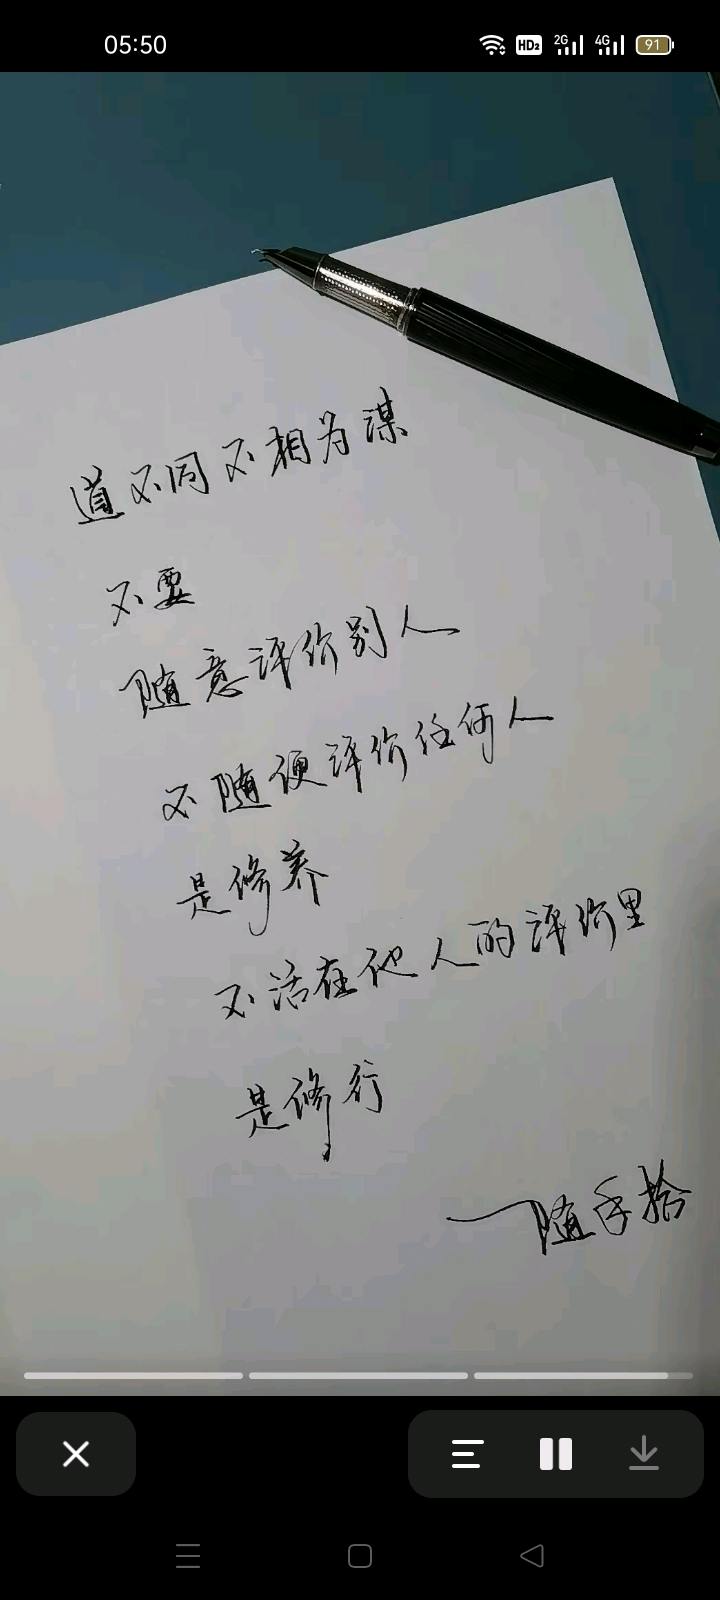 05:50
HD2 2G 4G 91
道不同不相为谋
不要
随意评价别人
不随便评价任何人
是修养
不活在他人的评价里
是修行
—随手拾